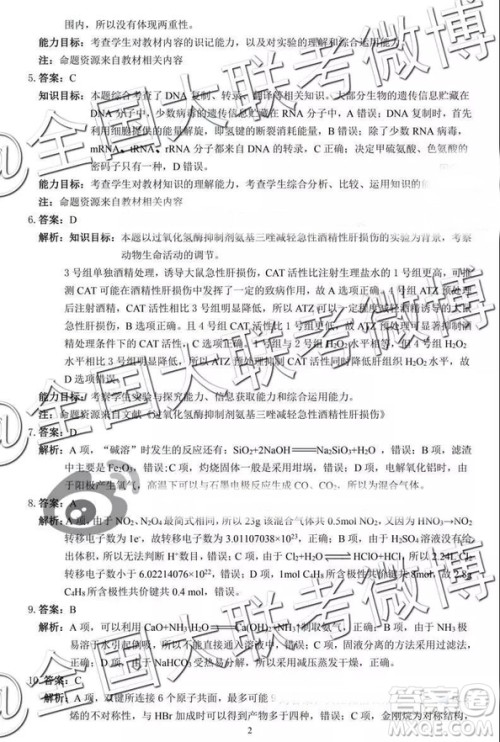 围内,所以没有体现两重性。
能力目标:考查学生对教材内容的识记能力,以及对实验的理解和综合运用能力。
注:命题资源来自教材相关内容
5.答案:C
知识目标:本题综合考查了 DNA 复制、转录、翻译等相关知识。大部分生物的遗传信息贮藏在
DNA 分子中,少数病毒的遗传信息贮藏在 RNA 分子中,A 错误;DNA 复制时,首先利用
细胞提供的能量解旋,即氢键的断裂消耗能量,B 错误;除了少数 RNA 病毒,
mRNA、tRNA、rRNA 都来自 DNA 的转录,C 正确;决定甲硫氨酸、色氨酸的
密码子只有一种,D 错误。
能力目标:考查学生对教材知识的理解能力,考查学生综合分析、比较、运用
注:命题资源来自教材相关内容
6.答案:D
解析:知识目标:本题以过氧化氢酶抑制剂氨基三唑减轻急性酒精性肝损伤的实验为背景,考察
动物生命活动的调节。
3 号组单独酒精处理,诱导大鼠急性肝损伤,CAT 活性比注射生理盐水的 1 号组更高,可推
测 CAT 可能在酒精性肝损伤中发挥了一定的致病作用,故 A 选项正确。2 号组注射 ATZ
后注射酒精,CAT 活性相比 3 号组明显降低,所以 ATZ 可以
急性肝损伤,B 选项正确。且 4 号组 CAT 活性比 1 号组
精处理条件下的 CAT 活性,C 选项正确。相比 1 号组和 4 号组 H₂O₂
水平相比 3 号组明显升高,故 ATZ 预处理抑制 CAT 活性同时降低肝组织 H₂O₂ 水平,故
D 选项错误。
能力目标:考察学生实验与探究能力、信息获取能力和综合运用能力。
注:命题资源来自文献《过氧化氢酶抑制剂氨基三唑减轻急性酒精性肝损伤》
7.答案:D
解析:A 项,“碱溶”时发生的反应还有:SiO₂+2NaOH=Na₂SiO₃+H₂O,错误;B 项,滤渣
中主要是 Fe₂O₃,错误;C 项,灼烧固体一般使用坩埚,错误;D 项,正确,电解氧化铝时,由
于阳极产生氧气,高温下可以与石墨电极发生反应生成 CO、CO₂,所以为混合气体。
8.答案:A
解析:A 项,由于 NO₂、N₂O₄ 最简式相同,所以 23g 该混合气体共 0.5mol NO₂,又因为 HNO₃→NO₂
转移电子数为 1,所以转移电子数约为 3.01107038×10²³,正确;B 项,由于 H₂SO₄ 溶液没有给
出体积,所以无法判断 H⁺数目,错误;C 项,由于 Cl₂+H₂O⇌HClO+HCl,所以 2.24L Cl₂
转移电子数小于 6.02214076×10²²,错误;D 项,1mol C₄H₈ 所含极性共价键共 8mol,故 2.8g
C₄H₈ 所含极性共价键共 0.4 mol,错误。
9.答案:B
解析:A 项,可以利用 CaO+NH₃·H₂O=Ca(OH)₂+NH₃↑制取氨气,正确;B 项,由于 NH₃ 极
易溶于水引起倒吸,所以不能直接通入水中,错误;C 项,固液分离应使用过滤操作,正确;
D 项,由于 NaHCO₃ 受热易分解,所以采用减压蒸发干燥,正确。
10.答案:C
解析:A 项,双键所连接 6 个原子共面,最多可能
烯的不对称性,所以与 HBr 加成时可以得到产物多于四种,错误;C 项,金刚烷为对称
2
@全国大联考微博